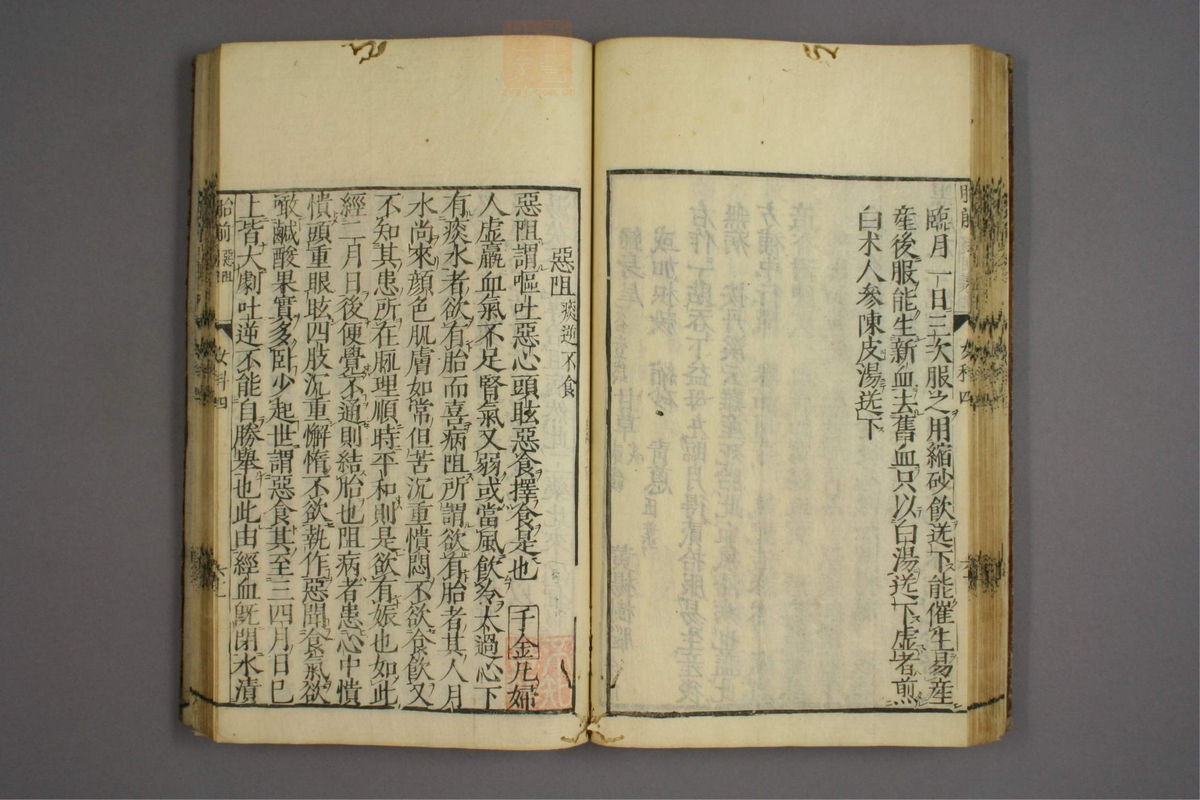 臨月一日三次服之用縮砂飲送下能催生易産
産後服能生新血去舊血只以白湯送下虚者煎
白术人參陳皮湯送下
惡阻 痰逆不食
惡阻謂嘔吐惡心頭眩惡食擇食是也 千金凡婦
人虚羸血氣不足腎氣又弱或當風飲冷太過心下
有痰水者欲有胎而喜病阻所謂欲有胎者其人月
水尚來顔色肌膚如常但苦沉重憒悶不欲食飲又
不知其患所在脉理順時平和則是欲有娠也如此
經二月日後便覺不通則結胎也阻病者患心中憒
憒頭重眼眩四肢沉重懈惰不欲執作惡聞食氣欲
噉鹹酸果實多卧少起世謂惡食其至三四月日已
上皆大劇吐逆不能自勝舉也此由經血既閉水漬
胎前 惡阻 女科四